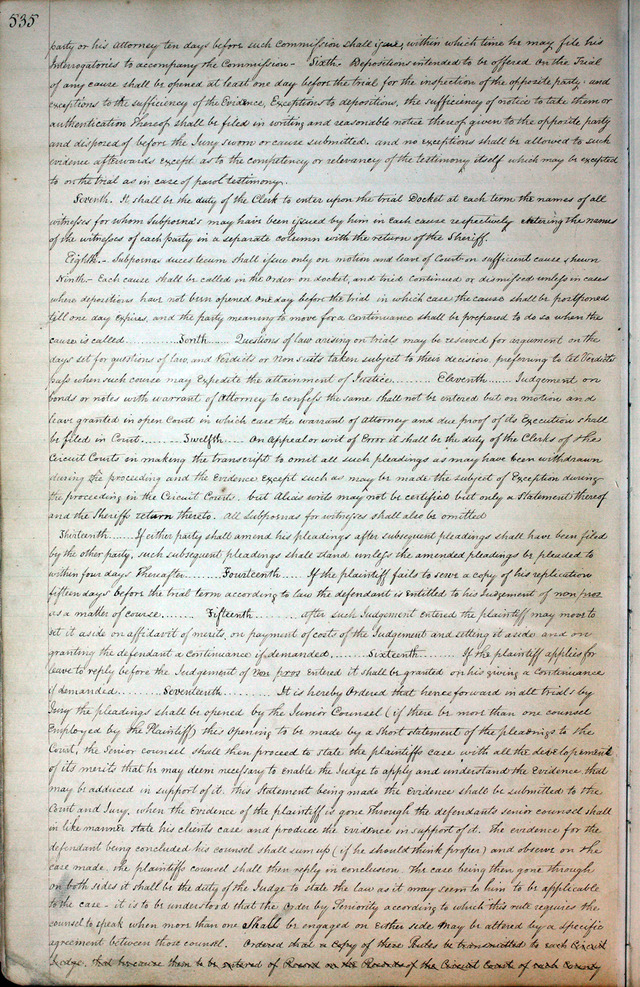 535
party or his Attorney ten days before such commission shall issue, within which time he may file his
Interrogatories to accompany the Commission - Sixth. Depositions intended to be offered on the Trial
of any cause shall be opened at least one day before the trial for the inspection of the opposite party. and
exceptions to the sufficiency of the Evidence, Exceptions to depositions, the sufficiency of notice to take them or
authentication thereof shall be filed in writing and reasonable notice thereof given to the opposite party
and disposed of before the Jury sworn or cause submitted, and no exceptions shall be allowed to such
evidence afterwards except as to the competency or relevancy of the testimony itself which may be excepted
to on the trial as in case of parol testimony.
Seventh. It shall be the duty of the Clerk to enter upon the trial Docket at each term the names of all
witnesses for whom Subpœnas may have been issued by him in each cause respectively entering the names
of the witnesses of each party in a separate column with the return of the Sheriff.
Eighth. - Subpœnas duces tecum shall issue only on motion and leave of Court on sufficient cause shewn
Ninth - Each cause shall be called in the order on docket, and tried continued or dismissed unless in cases
where depositions have not been opened one day before the trial in which case, the cause shall be postponed
till one day expires, and the party meaning to move for a continuance shall be prepared to do so when the
cause is called ........ Tenth ...... Questions of law arising on trials may be reserved for argument on the
days set for questions of law, and Verdicts or Non suits taken subject to their decision, preferring to let Verdicts
pass when such course may Expedite the attainment of Justice ........ Eleventh ..... Judgement on
bonds or notes with warrant of Attorney to confess the same shall not be entered but on motion and
leave granted in open Court in which case the warrant of Attorney and due proof of its Execution shall
be filed in Court ....... Twelfth ..... On Appeal or writ of Error it shall be the duty of the Clerks of the
Circuit Courts in making the transcript to omit all such pleadings as may have been withdrawn
during the proceeding and the Evidence Except such as may be made the subject of Exception during
the proceeding in the Circuit Courts. but Alias writs may not be certified but only a Statement thereof
and the Sheriffs return thereto. All Subpœnas for witnesses shall also be omitted
Thirteenth ..... If either party shall amend his pleadings after subsequent pleadings shall have been filed
by the other party, such subsequent pleadings shall stand unless the amended pleadings be pleaded to
within four days thereafter ....... Fourteenth ..... If the plaintiff fails to serve a copy of his replication
fifteen days before the trial term according to law the defendant is Entitled to his Judgement of non pros
as a matter of course ....... Fifteenth ........ After such Judgement entered the plaintiff may move to
set it aside on affidavit of merits, on payment of costs of the Judgement and setting it aside and on
granting the defendant a continuance if demanded ....... Sixteenth ....... If the plaintiff applies for
leave to reply before the Judgement of non pros entered it shall be granted on his giving a Continuance
if demanded ........ Seventeenth ......... It is hereby Ordered that henceforward in all trials by
Jury the pleadings shall be opened by the Junior Counsel (if there be more than one counsel
Employed by the Plaintiff) this Opening to be made by a short statement of the pleadings to the
Court, the Senior counsel shall then proceed to state the plaintiffs case with all the developement
of its merits that he may deem necessary to enable the Judge to apply and understand the Evidence that
may be adduced in support of it. this Statement being made the Evidence shall be submitted to the
Court and Jury. when the evidence of the plaintiff is gone through the defendants senior counsel shall
in like manner state his clients case and produce the Evidence in support of it. The evidence for the
defendant being concluded his counsel shall sum up (if he should think proper) and observe on the
case made. the plaintiffs counsel shall then reply in conclusion. the case being then gone through
on both sides it shall be the duty of the Judge to state the law as it may seem to him to be applicable
to the case - it is to be understood that the Order by Seniority according to which this rule requires the
counsel to speak when more than one Shall be engaged on Either side may be altered by a Specific
agreement between those counsel. Ordered that a Copy of these Rules be transmitted to each Circuit
Judge, that he cause them to be entered of Record on the Records of the Circuit Courts of each County